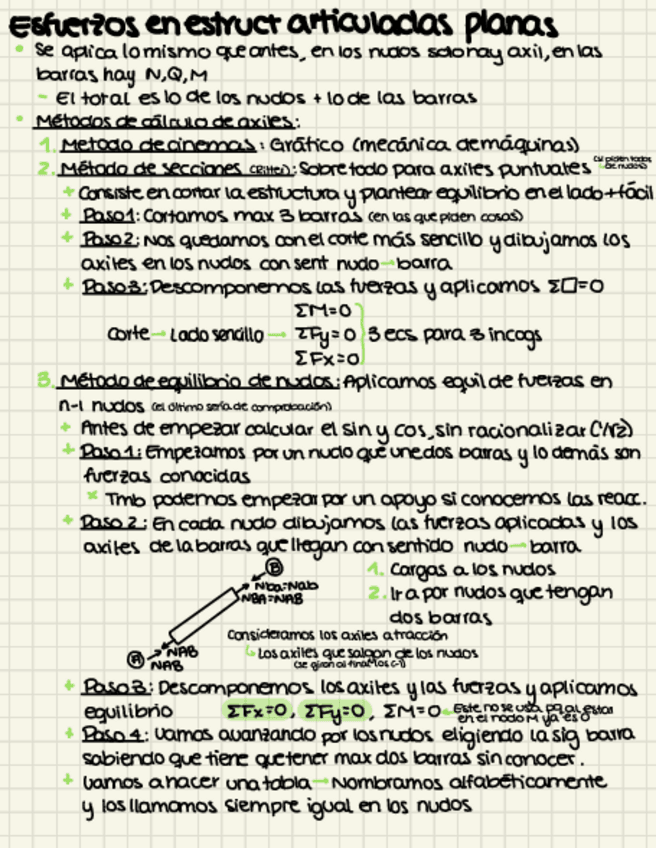 Esfuerzos en estruct articuladas planas
• Se aplica lo mismo que antes, en los nudos solo hay axil, en las
barras hay N,Q,M
- El total es lo de los nudos + lo de las barras
• Métodos de cálculo de axiles:
1. Metodo de cinemas: Gráfico (mecánica de máquinas)
2. Método de secciones (Ritter): Sobretodo para axiles puntuales (si piden todos
de nudos)
+ Consiste en cortar la estructura y plantear equilibrio en el lado + fácil
+ Paso 1: Cortamos max 3 barras (en las que piden cosas)
+ Paso 2: Nos quedamos con el corte más sencillo y dibujamos los
axiles en los nudos con sent nudo → barra
+ Paso 3: Descomponemos las fuerzas y aplicamos Σ□=0
ΣM=0
Corte → lado sencillo → ΣFy=0 } 3 ecs para 3 incogs
ΣFx=0
3. Método de equilibrio de nudos: Aplicamos equil de fuerzas en
n-1 nudos (el último sería de comprobación)
+ Antes de empezar calcular el sin y cos, sin racionalizar (1/√2)
+ Paso 1: Empezamos por un nudo que une dos barras y lo demás son
fuerzas conocidas
× Tmb podemos empezar por un apoyo si conocemos las reacc.
+ Paso 2: En cada nudo dibujamos las fuerzas aplicadas y los
axiles de la barras que llegan con sentido nudo → barra
B
Nba=Nab
NBA=NAB
1. Cargas a los nudos
2. Ir a por nudos que tengan
dos barras
Consideramos los axiles a tracción
Los axiles que salgan de los nudos
A
NAB
NAB
+ Paso 3: Descomponemos los axiles y las fuerzas y aplicamos
equilibrio ΣFx=0, ΣFy=0, ΣM=0 Este no se usa pq al estar
en el nodo M ya es 0
+ Paso 4: Vamos avanzando por los nudos eligiendo la sig barra
sabiendo que tiene que tener max dos barras sin conocer.
+ Vamos a hacer una tabla → Nombramos alfabéticamente
y los llamamos siempre igual en los nudos